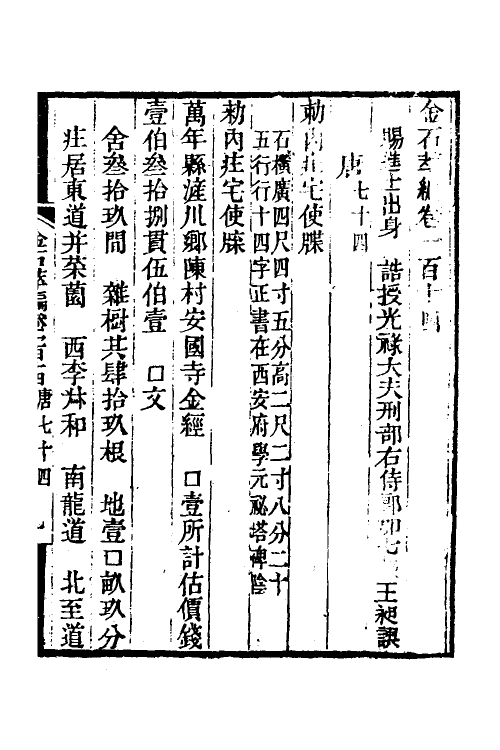 金石萃編卷一百十四
賜進士出身 誥授光祿大夫刑部右侍郎加七級王昶譔
唐七十四
勅內莊宅使牒
石橫廣四尺四寸五分高二尺二寸八分二十
五行行十四字正書在西安府學元祕塔碑陰
勅內疘宅使牒
萬年縣滻川鄉陳村安國寺金經 口壹所計估價錢
壹伯叁拾捌貫伍伯壹 口文
舍叁拾玖間 雜樹共肆拾玖根 地壹口畝玖分
疘居東道并菜薗 西李升和 南龍道 北至道
金石萃編卷一百十四唐七十四